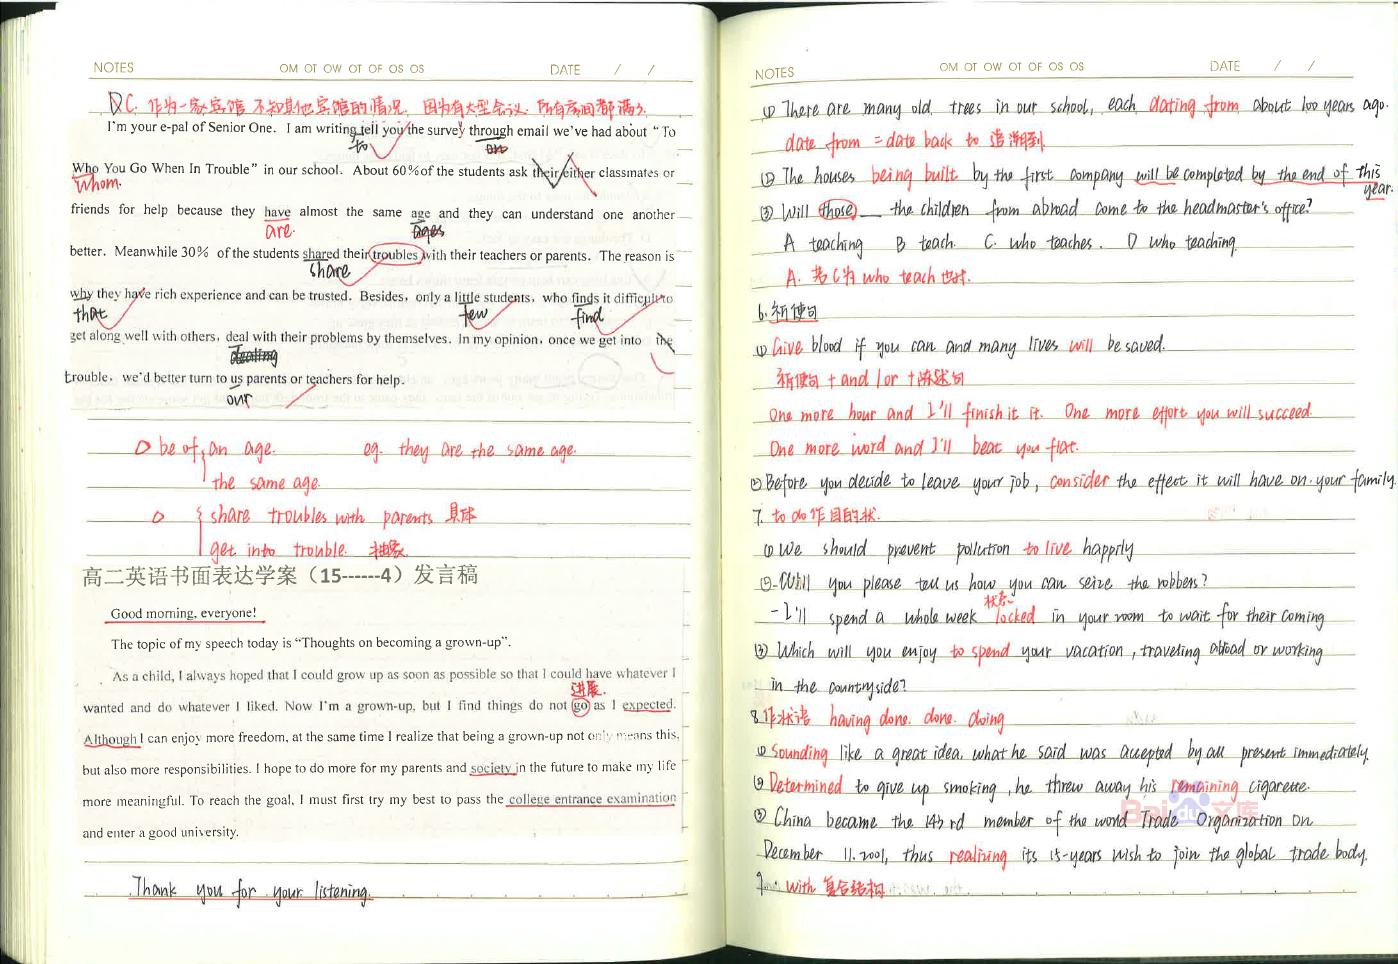 NOTES OM OT OW OT OF OS OS DATE / /
C. 作为一家宾馆 不知其他宾馆的情况. 因为有大型会议. 所有房间都满了.
I'm your e-pal of Senior One. I am writing tell you the survey through email we've had about “To
to on
Who You Go When In Trouble” in our school. About 60%of the students ask their either classmates or
Whom.
friends for help because they have almost the same age and they can understand one another
are. ages
better. Meanwhile 30% of the students shared their troubles with their teachers or parents. The reason is
share
why they have rich experience and can be trusted. Besides, only a little students, who finds it difficult to
that few find
get along well with others, deal with their problems by themselves. In my opinion, once we get into the
dealing
trouble, we'd better turn to us parents or teachers for help.
our
be of an age. eg. they are the same age.
the same age.
share troubles with parents 具体
get into trouble. 抽象
高二英语书面表达学案（15------4）发言稿
Good morning, everyone!
The topic of my speech today is “Thoughts on becoming a grown-up”.
As a child, I always hoped that I could grow up as soon as possible so that I could have whatever I
进展.
wanted and do whatever I liked. Now I'm a grown-up, but I find things do not go as I expected.
Although I can enjoy more freedom, at the same time I realize that being a grown-up not only means this,
but also more responsibilities. I hope to do more for my parents and society in the future to make my life
more meaningful. To reach the goal, I must first try my best to pass the college entrance examination
and enter a good university.
Thank you for your listening.
NOTES OM OT OW OT OF OS OS DATE / /
① There are many old trees in our school, each dating from about 100 years ago.
date from = date back to 追溯到
② The houses being built by the first company will be completed by the end of this
year.
③ Will those __ the children from abroad come to the headmaster's office?
A teaching B teach. C. who teaches. D who teaching.
A. 若C为 who teach 也对.
6. 祈使句
① Give blood if you can and many lives will be saved.
祈使句 + and / or + 陈述句
One more hour and I'll finish it it. One more effort you will succeed.
One more word and I'll beat you flat.
② Before you decide to leave your job, consider the effect it will have on your family.
7. to do 作目的状.
① We should prevent pollution to live happily
② -Will you please tell us how you can seize the robbers?
状态
- I'll spend a whole week locked in your room to wait for their coming
③ Which will you enjoy to spend your vacation, traveling abroad or working
in the countryside?
8. 作状语 having done. done. doing
① Sounding like a great idea. what he said was accepted by all present immediately.
② Determined to give up smoking, he threw away his remaining cigarette.
③ China became the 143 rd member of the world Trade Organization on
December 11. 2001, thus realizing its 15-years wish to join the global trade body.
9. with 复合结构
Baidu文库